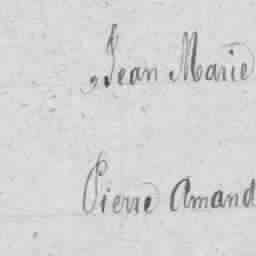 Jean Marie
Pierre Amand